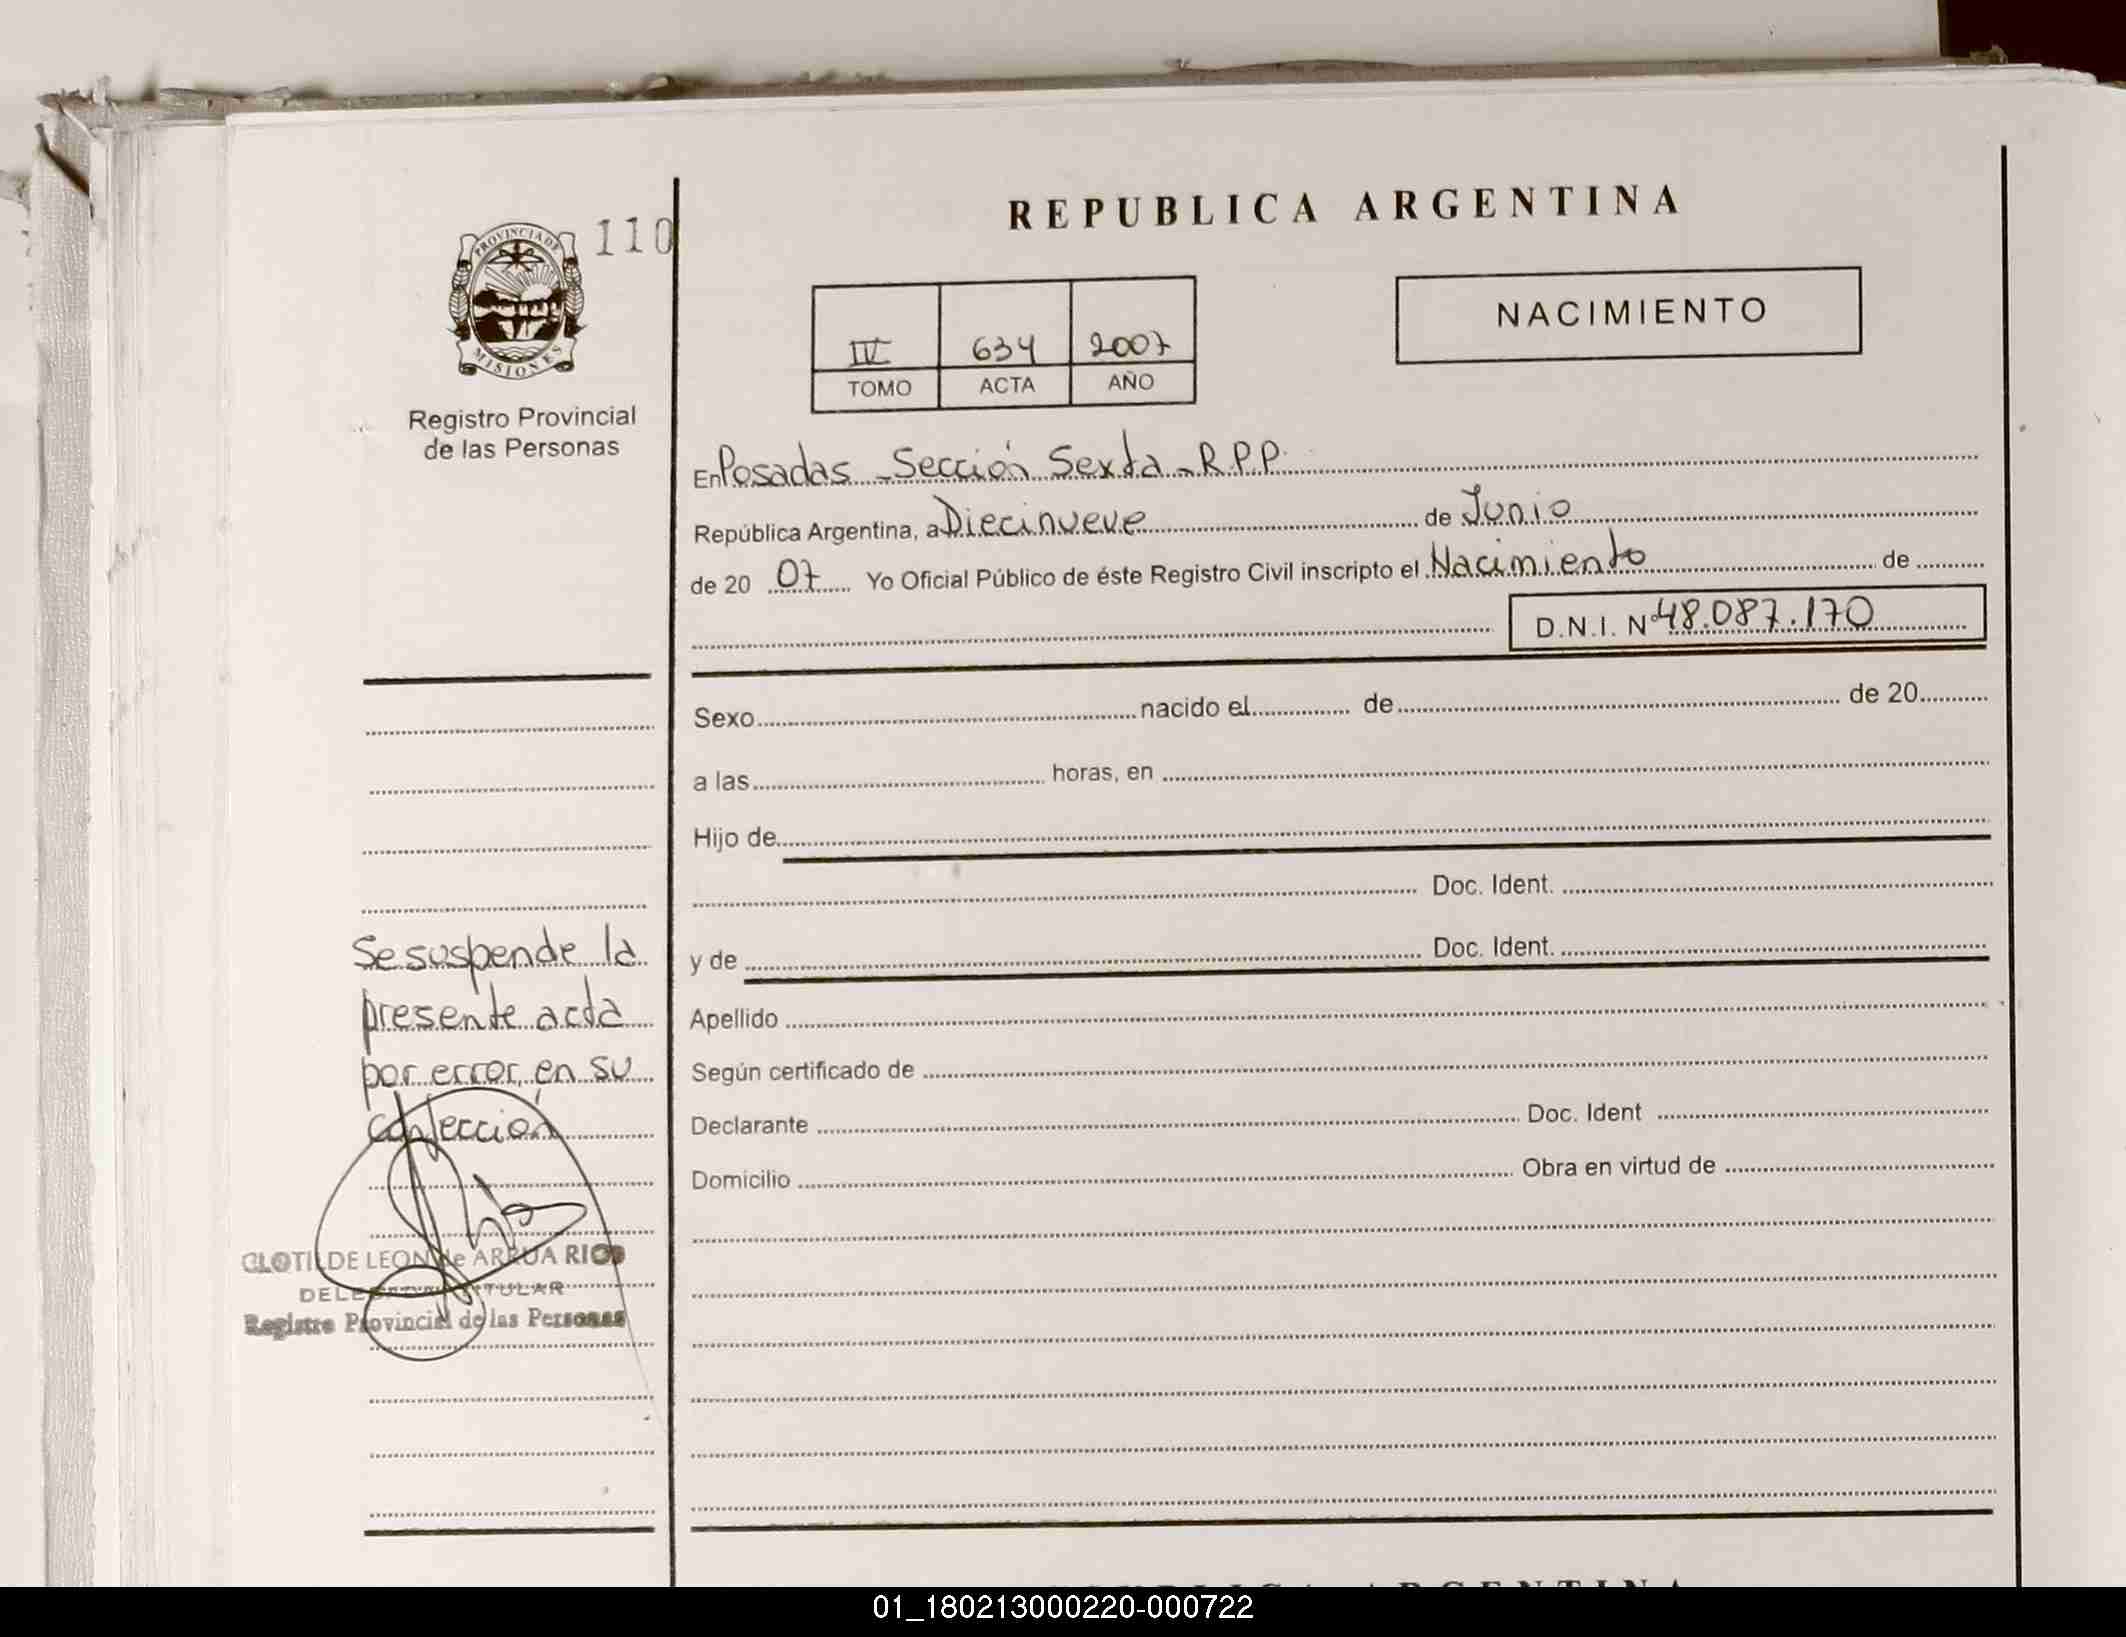 REPUBLICA ARGENTINA
110
PROVINCIA DE
MISIONES
Registro Provincial
de las Personas
IV 634 2007
TOMO ACTA AÑO
NACIMIENTO
En Posadas - Sección Sexta - R.P.P.
República Argentina, a Diecinueve de Junio
de 20 07 Yo Oficial Público de éste Registro Civil inscripto el Nacimiento de
D.N.I. Nº 48.087.170
Sexo nacido el de de 20
a las horas, en
Hijo de
Doc. Ident.
y de Doc. Ident.
Apellido
Según certificado de
Declarante Doc. Ident
Domicilio Obra en virtud de
Se suspende la
presente acta
por error, en su
confección
CLOTILDE LEON de ARRUA RIOS
DELEGADA TITULAR
Registro Provincial de las Personas
REPUBLICA ARGENTINA
01_180213000220-000722